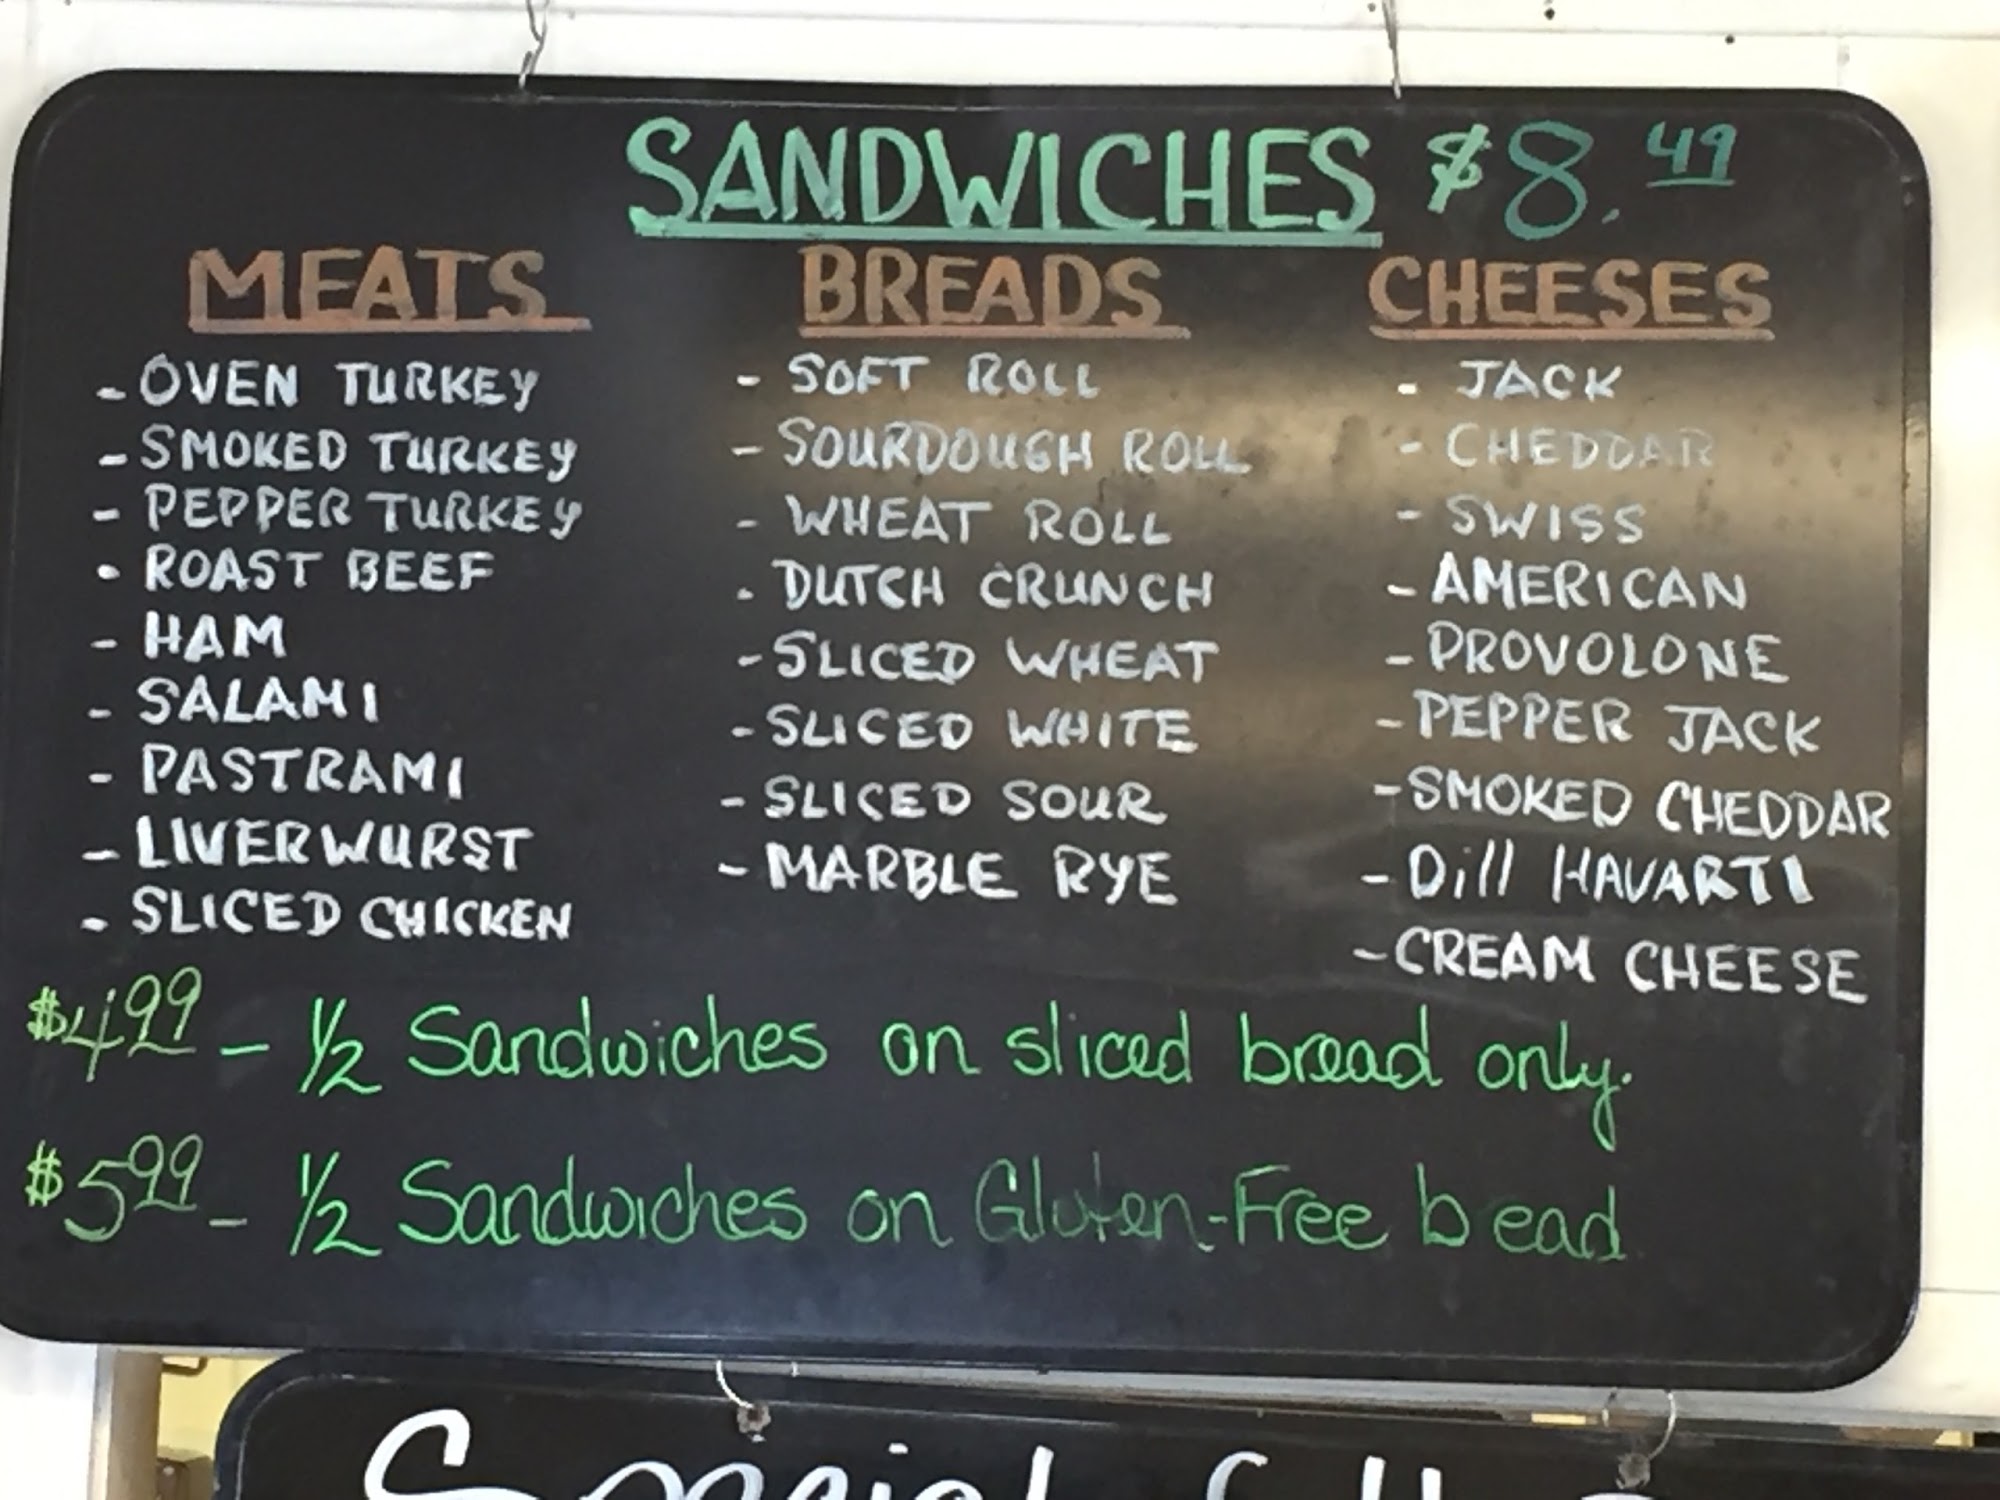 SANDWICHES $8.49
MEATS
- OVEN TURKEY
- SMOKED TURKEY
- PEPPER TURKEY
- ROAST BEEF
- HAM
- SALAMI
- PASTRAMI
- LIVERWURST
- SLICED CHICKEN
BREADS
- SOFT ROLL
- SOURDOUGH ROLL
- WHEAT ROLL
- DUTCH CRUNCH
- SLICED WHEAT
- SLICED WHITE
- SLICED SOUR
- MARBLE RYE
CHEESES
- JACK
- CHEDDAR
- SWISS
- AMERICAN
- PROVOLONE
- PEPPER JACK
- SMOKED CHEDDAR
- Dill HAVARTI
- CREAM CHEESE
$499 - 1/2 Sandwiches on sliced bread only.
$599 - 1/2 Sandwiches on Gluten-Free b ead
Special